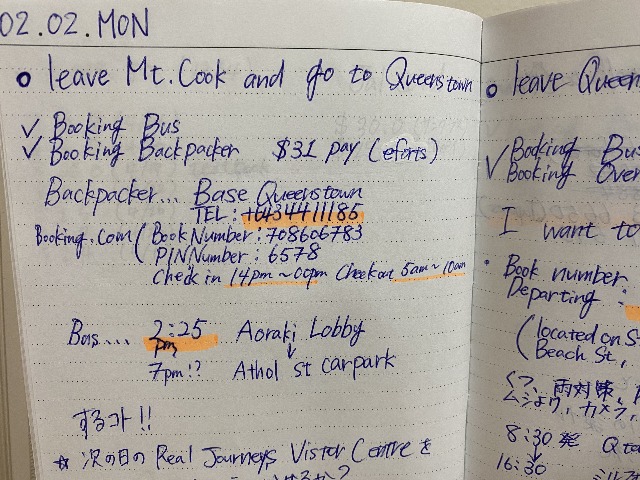 02.02.MON
○ leave Mt.Cook and go to Queenstown
✓ Booking Bus
✓ Booking Backpacker $31 pay (eforts)
Backpacker... Base Queenstown
TEL: +6434411185
Booking.com ( Book Number: 708606783
PIN Number: 6578
Check in 14pm~00pm Check out 5am~10am
Bus... 2:25 Aoraki Lobby
pm ↓
7pm!? Athol st carpark
するコト!!
☆ 次の日の Real Journeys Visitor Centre を
○ leave Queen
✓ Booking Bus
Booking Over
I want to
• Book number
Departing :
(located on S
Beach St,
くつ、雨対策、
ムシよけ、カメラ、
8:30 発 Q
16:30